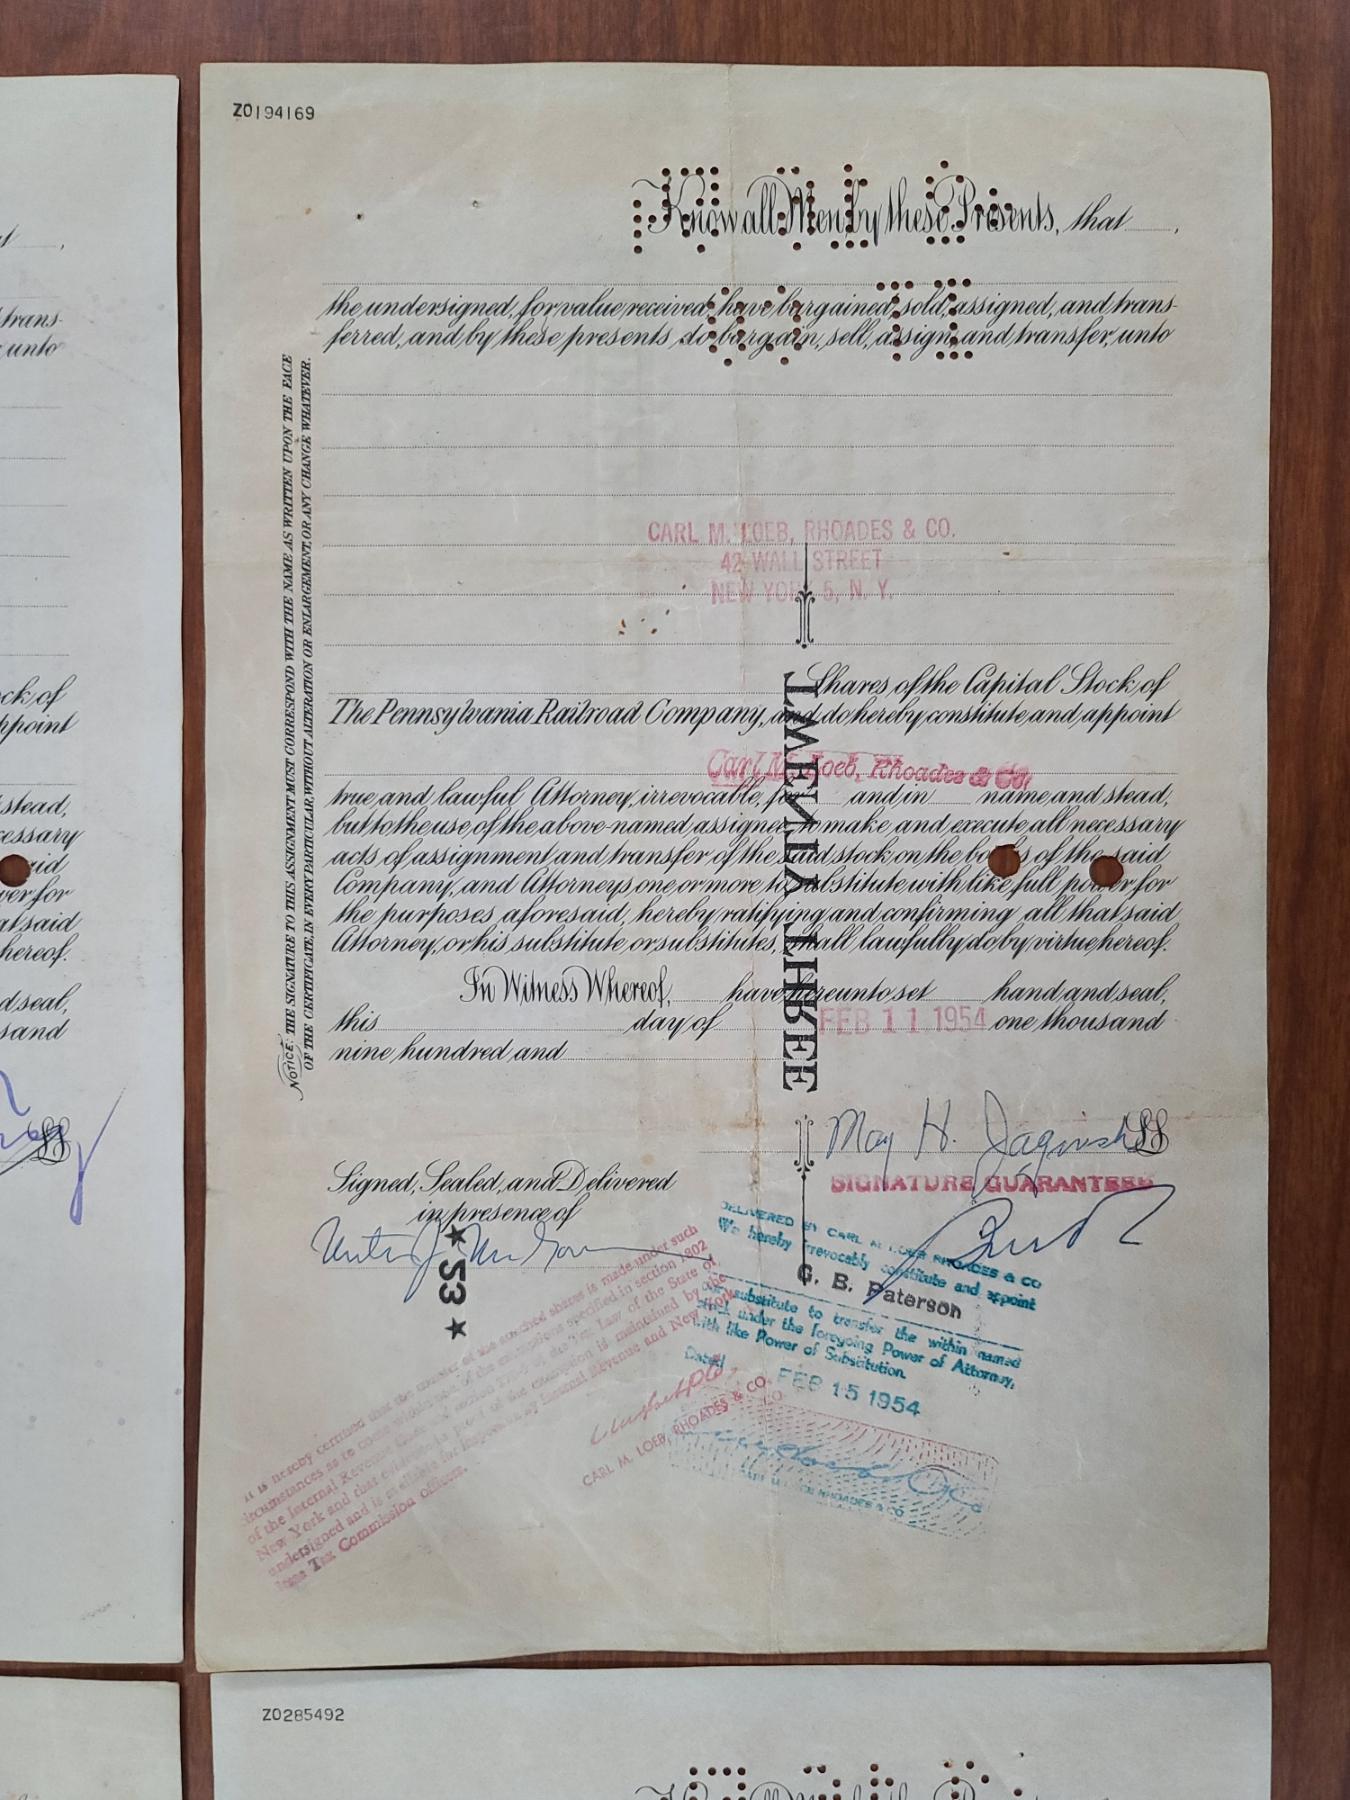 Z0194169
Know all Men by these Presents, that
the undersigned, for value received, have bargained, sold, assigned, and trans-
ferred, and by these presents do bargain, sell, assign, and transfer, unto
CARL M. LOEB, RHOADES & CO.
42 WALL STREET
NEW YORK 5, N. Y.
Shares of the Capital Stock of
The Pennsylvania Railroad Company, and do hereby constitute and appoint
Carl M. Loeb, Rhoades & Co.
true and lawful Attorney, irrevocable, for and in name and stead,
but to the use of the above-named assignee, to make and execute all necessary
acts of assignment and transfer of the said stock on the books of the said
Company, and Attorneys one or more to substitute with like full power for
the purposes aforesaid, hereby ratifying and confirming all that said
Attorney, or his substitute or substitutes, shall lawfully do by virtue hereof.
In Witness Whereof, have hereunto set hand and seal,
this day of FEB 11 1954 one thousand
nine hundred and
May H. LS
SIGNATURE GUARANTEED
Signed, Sealed, and Delivered
in presence of
NOTICE: THE SIGNATURE TO THIS ASSIGNMENT MUST CORRESPOND WITH THE NAME AS WRITTEN UPON THE FACE
OF THE CERTIFICATE, IN EVERY PARTICULAR, WITHOUT ALTERATION OR ENLARGEMENT, OR ANY CHANGE WHATEVER.
TWENTY THREE
★ 53 ★
DELIVERED BY CARL M. LOEB RHOADES & CO
We hereby irrevocably constitute and appoint
G. B. Paterson
substitute to transfer the within named
stock under the foregoing Power of Attorney,
with like Power of Substitution.
Dated FEB 15 1954
CARL M. LOEB, RHOADES & CO.
RHOADES & CO
It is hereby certified that the transfer of the attached shares is made under such
circumstances as to come within one of the exemptions specified in section 1802
of the Internal Revenue Code and section 270 of the Tax Law of the State of
New York and that evidence in support of the exemption is maintained by the
undersigned and is available for inspection by Internal Revenue and New York
State Tax Commission officers.
Z0285492
trans-
unto
ck of
ppoint
stead,
cessary
said
ver for
at said
hereof.
d seal,
sand
LS